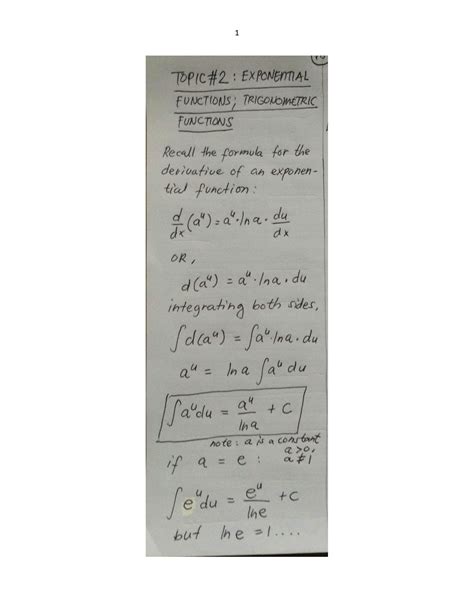 1
TOPIC #2 : EXPONENTIAL
FUNCTIONS; TRIGONOMETRIC
FUNCTIONS
Recall the formula for the
derivative of an exponen-
tial function:
d/dx (a^u) = a^u · ln a · du/dx
OR,
d(a^u) = a^u · ln a · du
integrating both sides,
∫d(a^u) = ∫a^u · ln a · du
a^u = ln a ∫a^u du
∫a^u du = a^u/ln a + C
note: a is a constant
a>0,
if a = e : a≠1
∫e^u du = e^u/ln e + C
but ln e = 1....